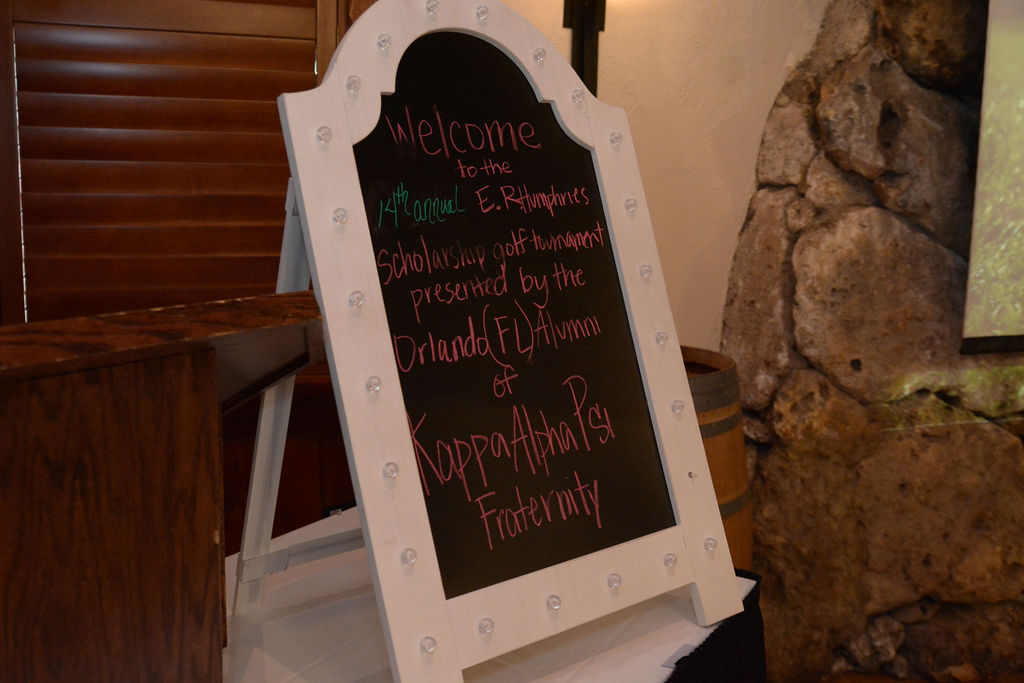 Welcome
to the
14th annual E. R Humphries
Scholarship golf tournament
presented by the
Orlando (FL) Alumni
of
Kappa Alpha Psi
Fraternity